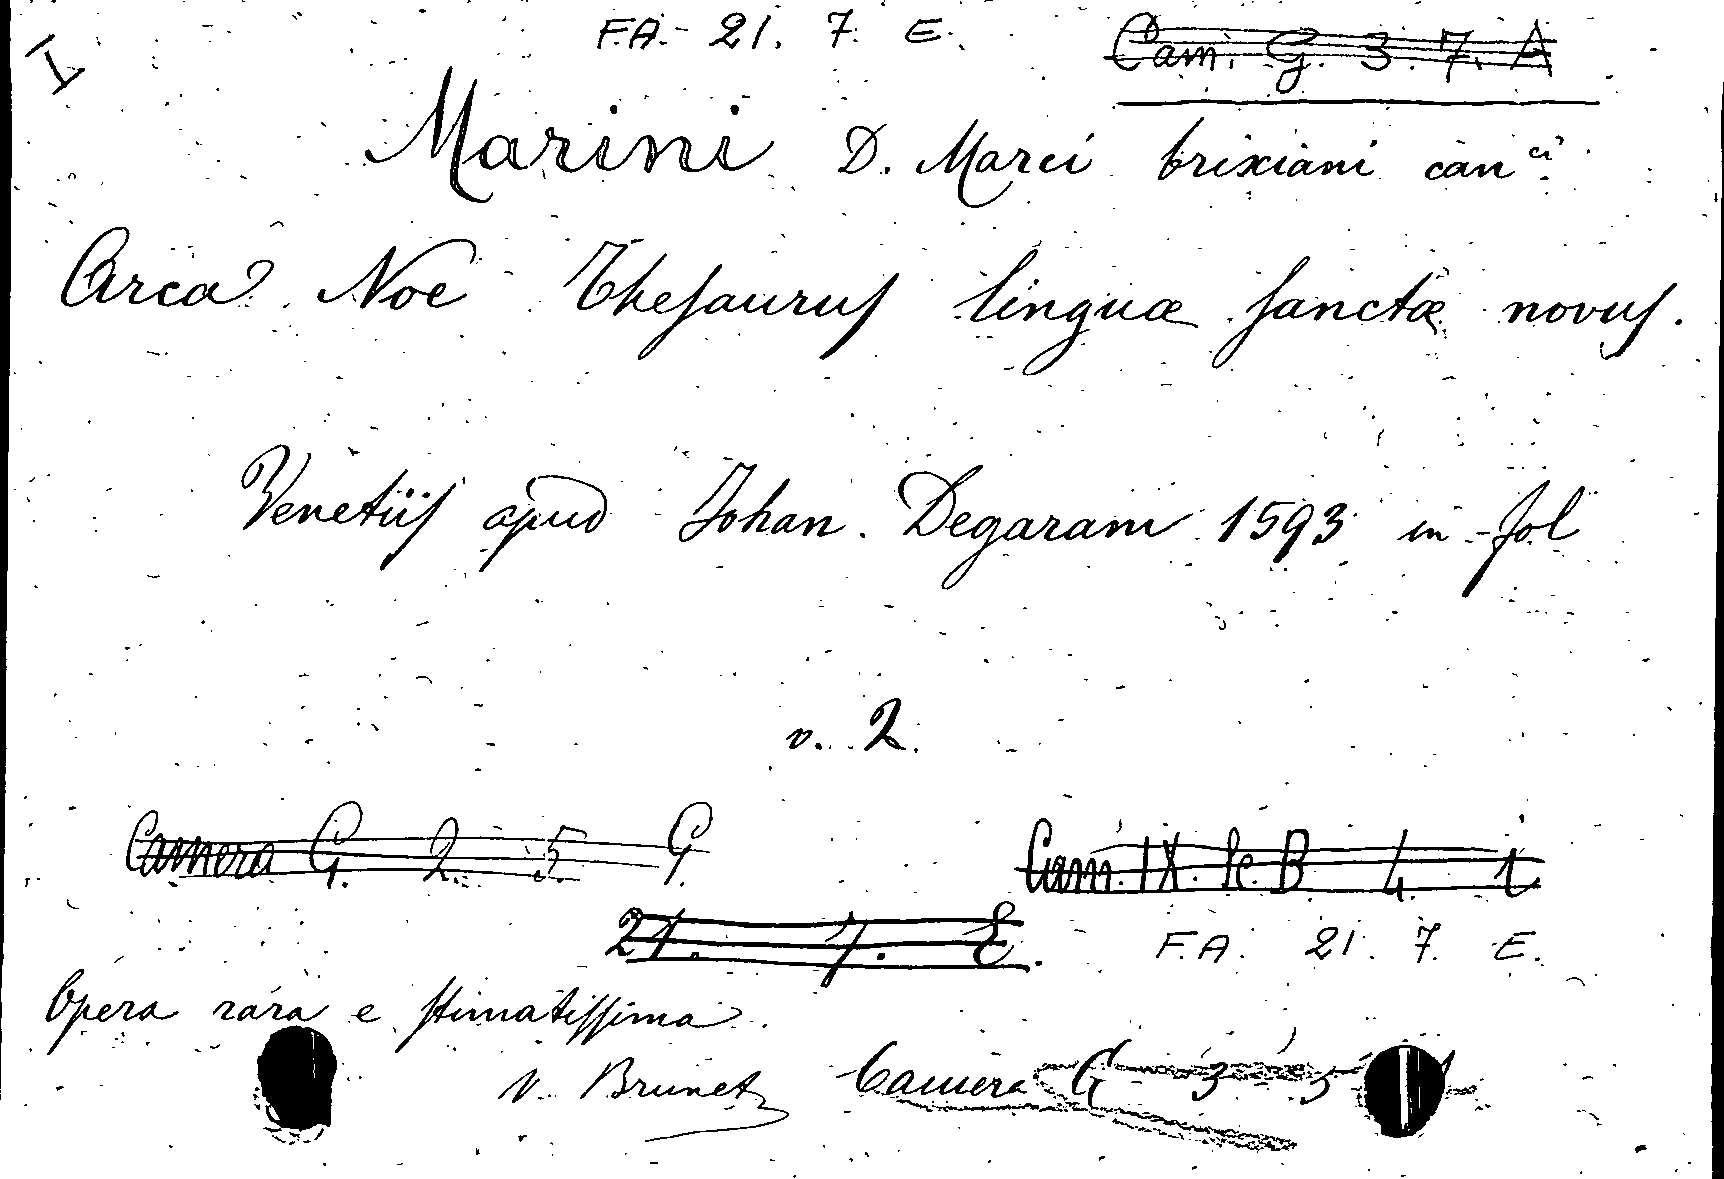 I
F.A. 21. 7. E. Cam. G. 3. 7. A
Marini D. Marci brixiani can.ci
Arca Noe Theſauruſ linguæ ſanctæ novuſ.
Venetiiſ apud Johan. Degaram 1593 in fol
v. 2.
Camera G. 2. 5. G Cam. IX. Sc. B 4. 1
21. 7. E. F.A. 21. 7. E.
Opera rara e ſtimatiſſima.
V. Brunet Camera G 3 5